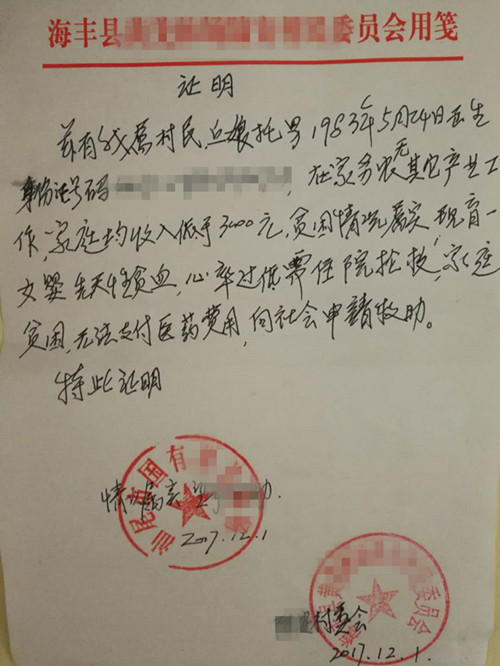 海丰县 委员会用笺
证明
兹有我属村民,丘娘托男1983年5月24日出生
身份证号码 ,在家务农无其它产业工
作,家庭均收入低于3000元,贫困情况属实,现育一
女婴先天性贫血,心率过低需住院抢救,家庭
贫困,无法支付医药费用,向社会申請救助。
特此证明
国有
情况属实
2017.12.1
委员会
村委会
2017.12.1